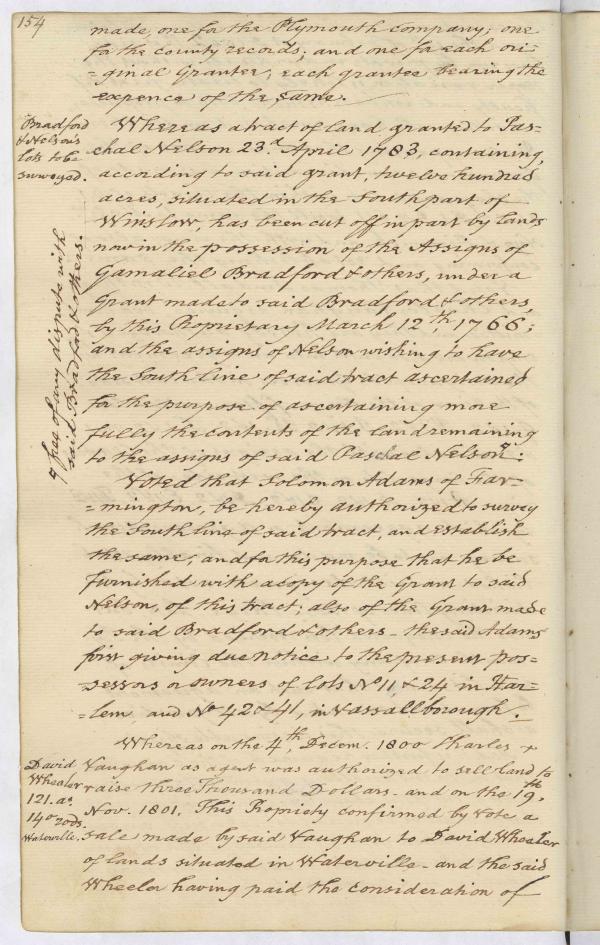 154
made, one for the Plymouth Company; one
for the county records; and one for each ori-
=ginal Grantee; each grantee bearing the
expence of the same.
Bradford
& Nelson's
lots to be
surveyed.
Whereas a tract of land granted to Pas-
chal Nelson 23.d April 1783, containing,
according to said grant, twelve hundred
acres, situated in the South part of
Winslow, has been cut off in part by lands
now in the possession of the Assigns of
Gamaliel Bradford & others, under a
Grant made to said Bradford & others,
by this Proprietary March 12th, 1766;
and the assigns of Nelson wishing to have
the South line of said tract ascertained
for the purpose of ascertaining more
fully the contents of the land remaining
to the assigns of said Paschal Nelson:
& free of any dispute with
said Bradford & others.
Voted that Solomon Adams of Far-
=mington, be hereby authorized to survey
the South line of said tract, and establish
the same; and for this purpose that he be
furnished with a copy of the Grant to said
Nelson, of this tract; also of the Grant made
to said Bradford & others - the said Adams
first giving due notice to the present pos-
=sessors or owners of lots No 11, & 24 in Har-
=lem, and No 42 & 41, in Vassallborough.
David
Wheeler
121. as
140 rods
Waterville.
Whereas on the 4th, Decem. 1800 Charles
Vaughan as agent was authorized to sell land to
raise three Thousand Dollars - and on the 19th,
Nov. 1801. This Propriety confirmed by vote a
sale made by said Vaughan to David Wheeler
of lands situated in Waterville - and the said
Wheeler having paid the consideration of